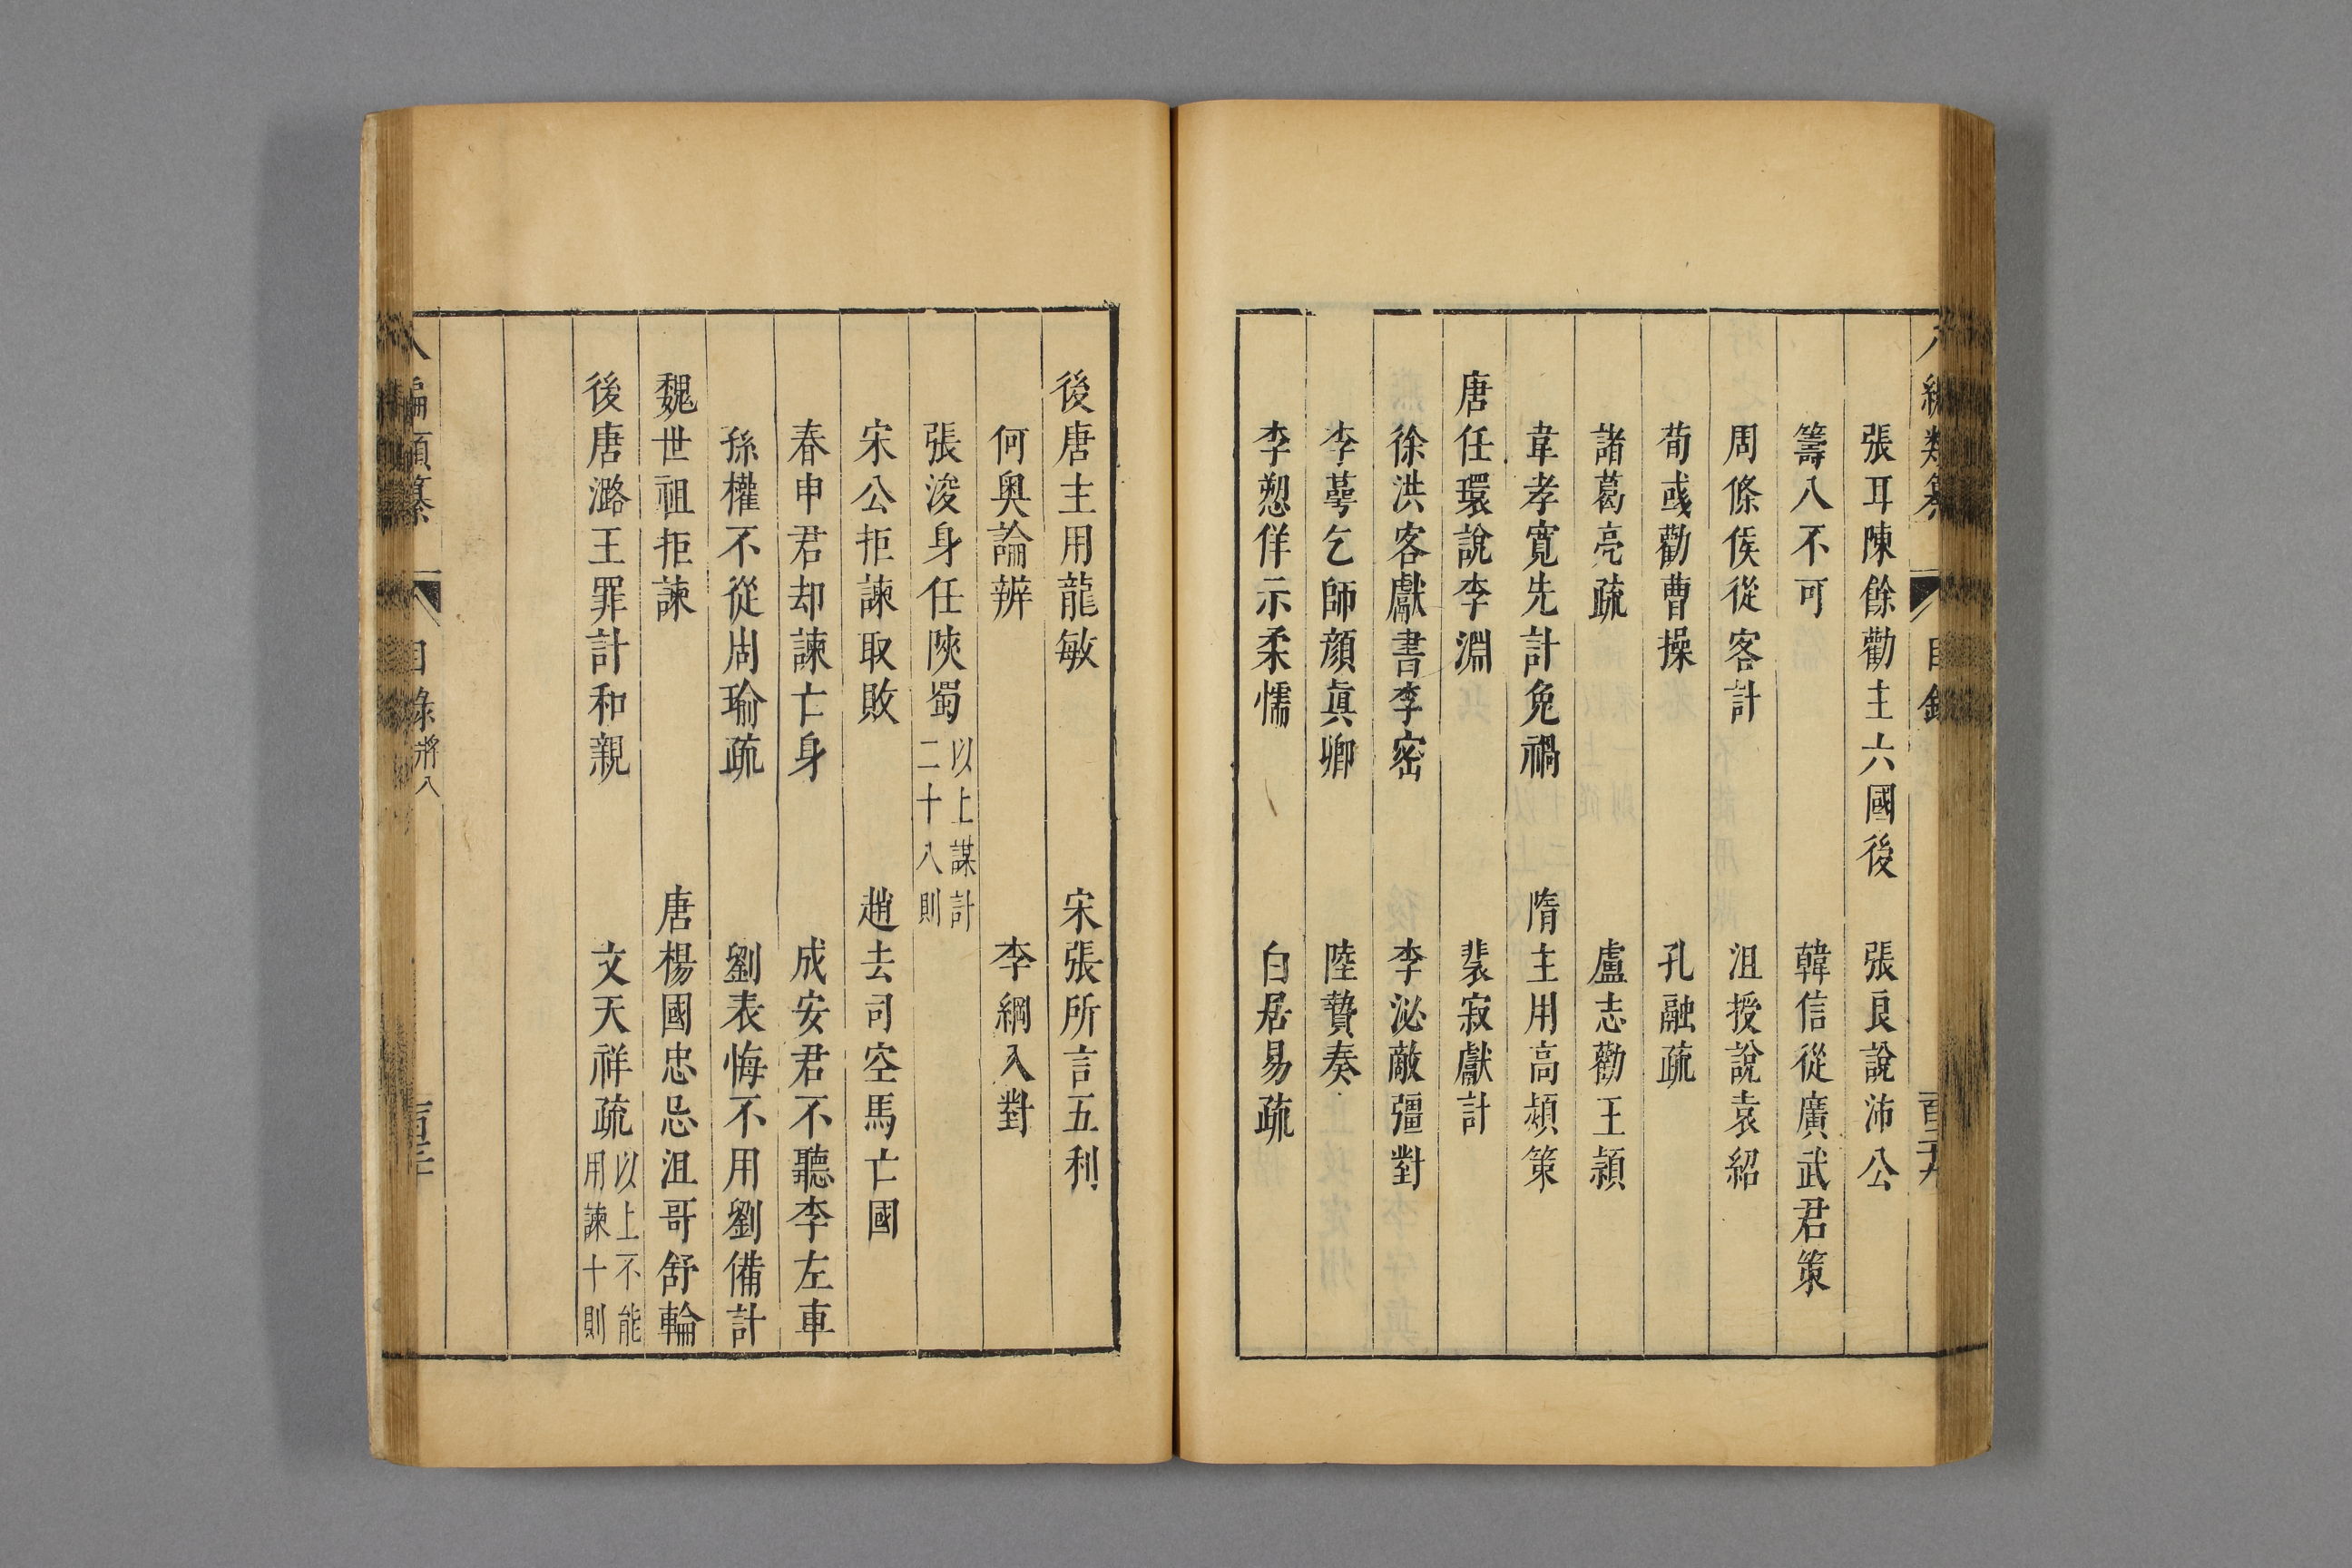 張耳陳餘勸主六國後　張良說沛公
籌八不可　韓信從廣武君策
周條侯從客計　沮授說袁紹
荀彧勸曹操　孔融疏
諸葛亮疏　盧志勸王頴
韋孝寬先計免禍　隋主用高熲策
唐任環說李淵　裴寂獻計
徐洪客獻書李密　李泌敵彊對
李萼乞師顏眞卿　陸贄奏
李愬佯示柔懦　白居易疏
後唐主用龍敏　宋張所言五利
何奥論辨　李綱入對
張浚身任陝蜀以上謀計二十八則
宋公拒諫取敗　趙去司空馬亡國
春申君却諫亡身　成安君不聽李左車
孫權不從周瑜疏　劉表悔不用劉備計
魏世祖拒諫　唐楊國忠忌沮哥舒輪
後唐潞王罪計和親　文天祥疏以上不能用諫十則
編類纂　目錄　將八